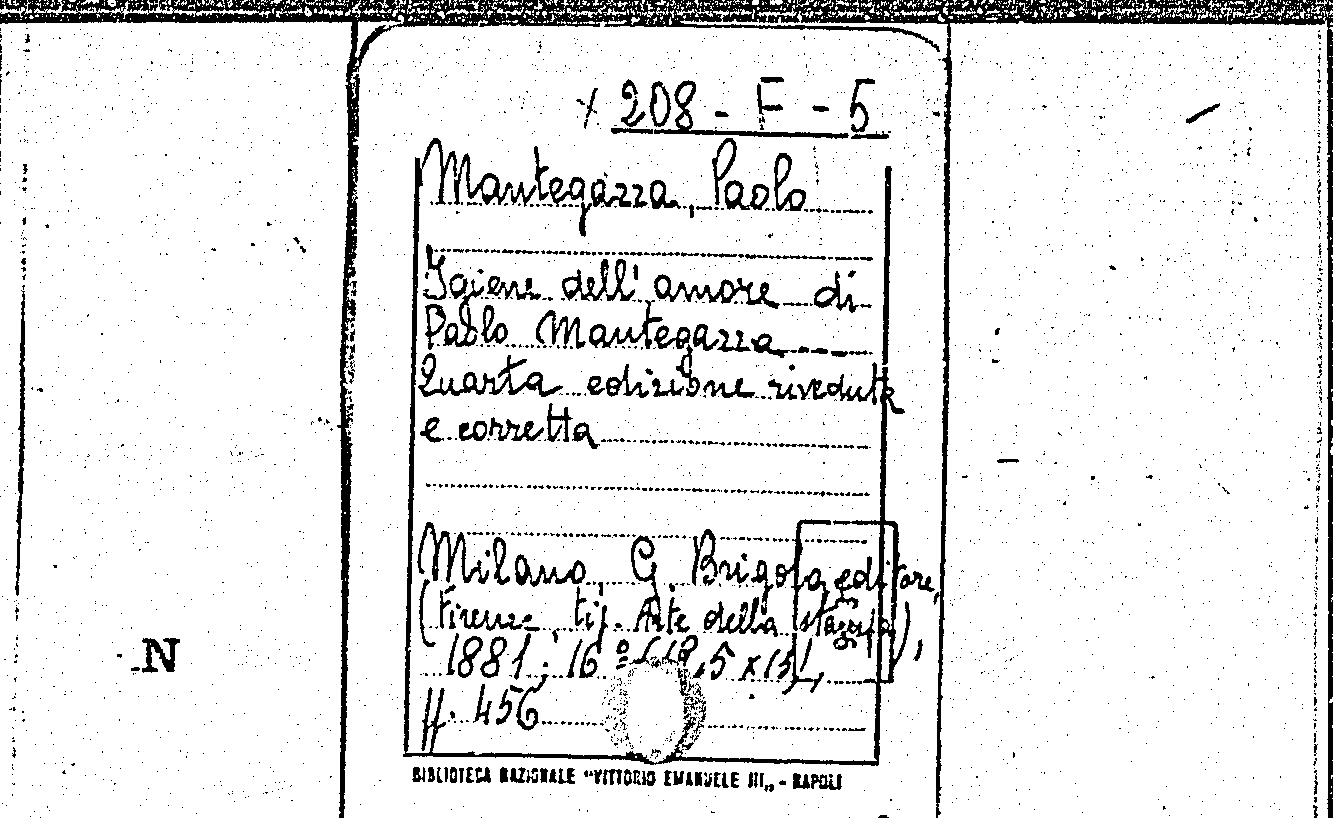 x 208 - F - 5
Mantegazza, Paolo
Igiene dell'amore di
Paolo Mantegazza
Quarta edizione riveduta
e corretta
Milano, G. Brigola editore,
(Firenze, tip. Arte della stampa),
1881; 16º (18,5 x 13),
pp. 456
N
BIBLIOTECA NAZIONALE "VITTORIO EMANUELE III„ - NAPOLI